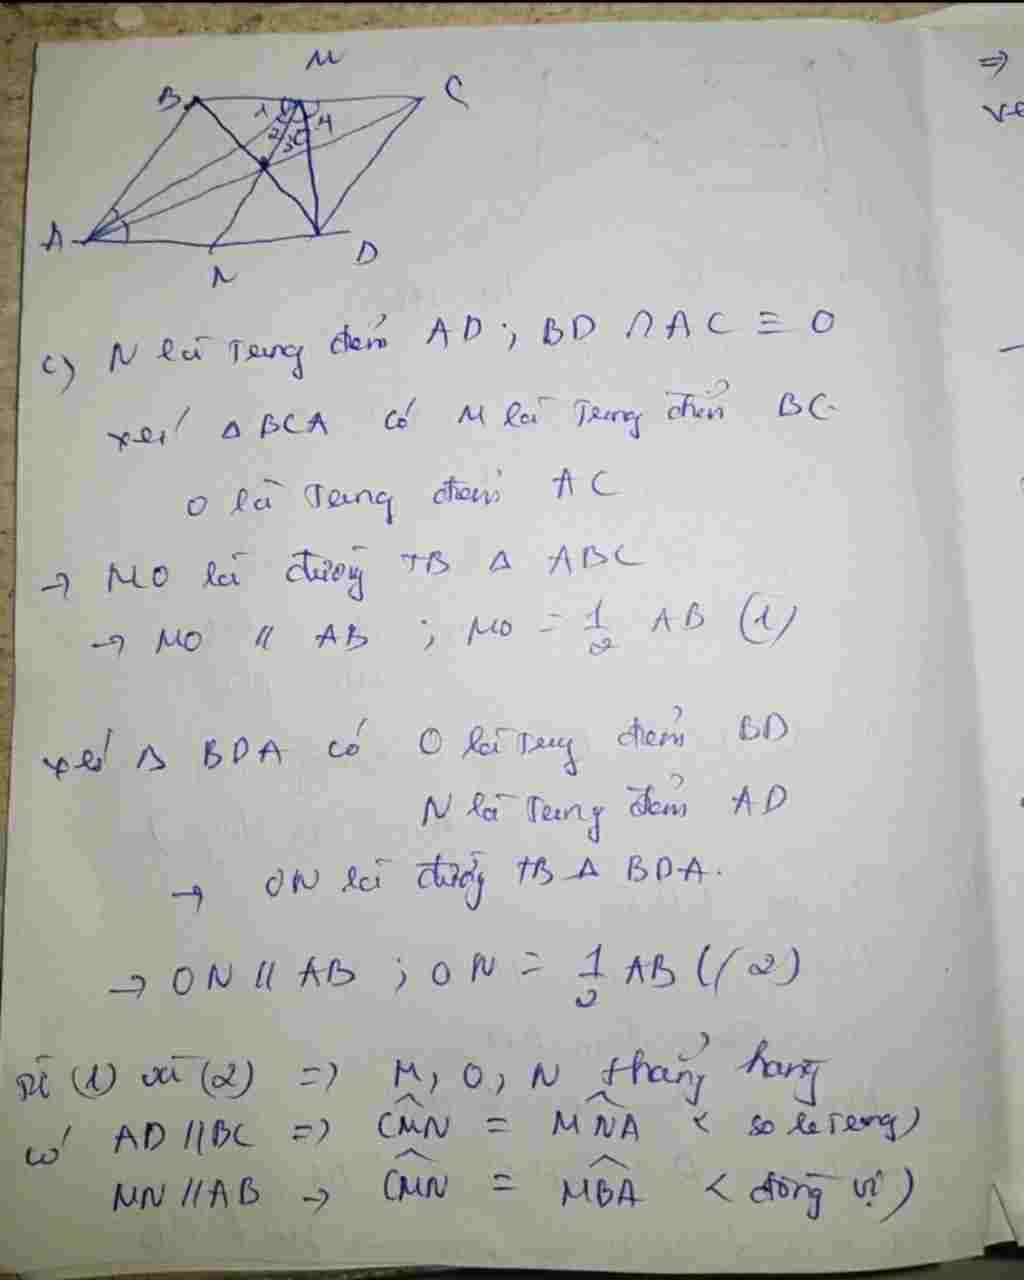 M
B C
1 2 3 4
A
N D
=>
c) N là trung điểm AD ; BD ∩ AC ≡ O
xét Δ BCA có M là trung điểm BC
O là trung điểm AC
→ MO là đường TB Δ ABC
→ MO // AB ; MO = 1/2 AB (1)
xét Δ BDA có O là trung điểm BD
N là trung điểm AD
→ ON là đường TB Δ BDA.
→ ON // AB ; ON = 1/2 AB (2)
Từ (1) và (2) => M, O, N thẳng hàng
có AD // BC => CMN = MNA < so le trong)
MN // AB → CMN = MBA < đồng vị )